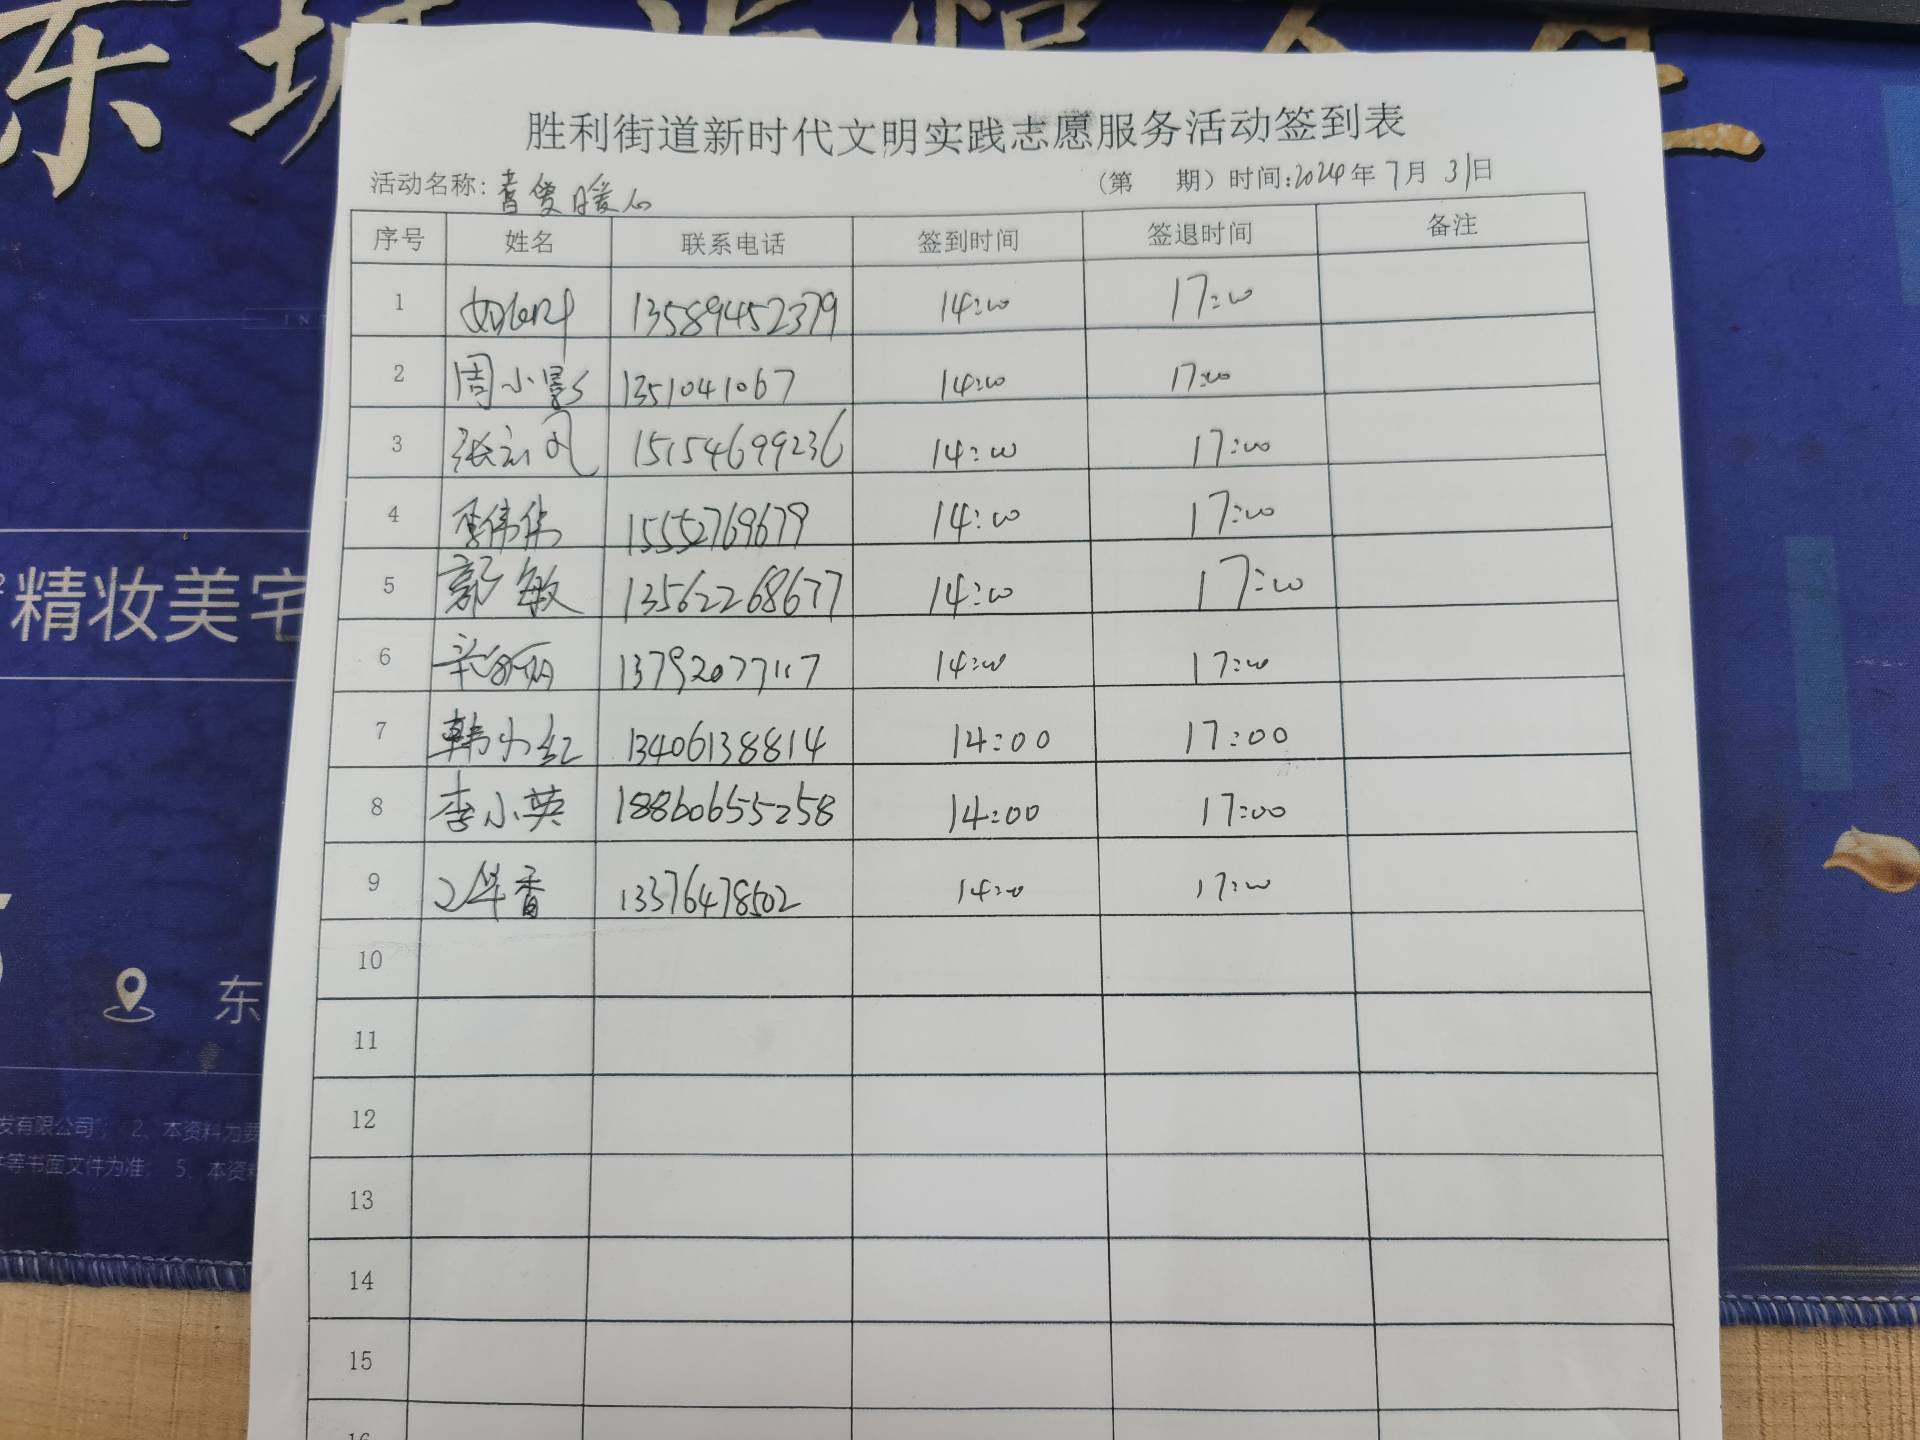 胜利街道新时代文明实践志愿服务活动签到表
活动名称: 暖心 (第 期) 时间:2024年7月31日
序号 姓名 联系电话 签到时间 签退时间 备注
1 13589452379 14:00 17:00
2 周小影 1351041067 14:00 17:00
3 张云风 15154699236 14:00 17:00
4 李伟伟 15552769679 14:00 17:00
5 郭敏 13562268677 14:00 17:00
6 13792077117 14:00 17:00
7 韩小红 13406138814 14:00 17:00
8 李小英 18860655258 14:00 17:00
9 华香 13376478502 14:00 17:00
10
11
12
13
14
15
16
精妆美宅
东
发有限公司; 2、本资料为要
等书面文件为准; 5、本资